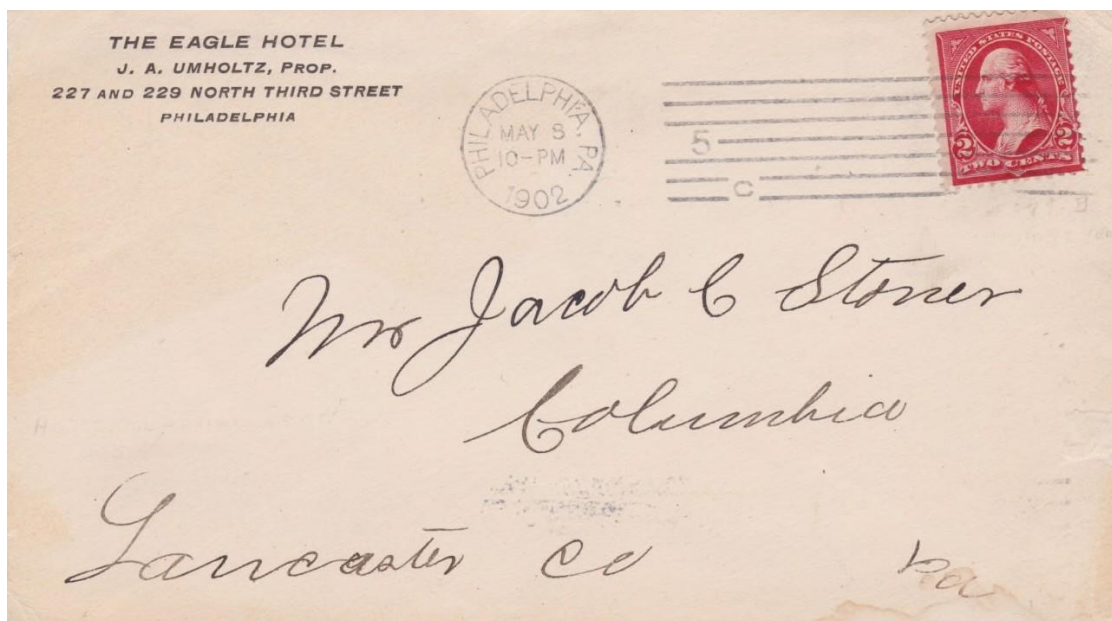 THE EAGLE HOTEL
J. A. UMHOLTZ, PROP.
227 AND 229 NORTH THIRD STREET
PHILADELPHIA
PHILADELPHIA, PA.
MAY 8
10-PM
1902
5
C
UNITED STATES POSTAGE
2 2
TWO CENTS
Mr Jacob C Stoner
Columbia
Lancaster Co Pa